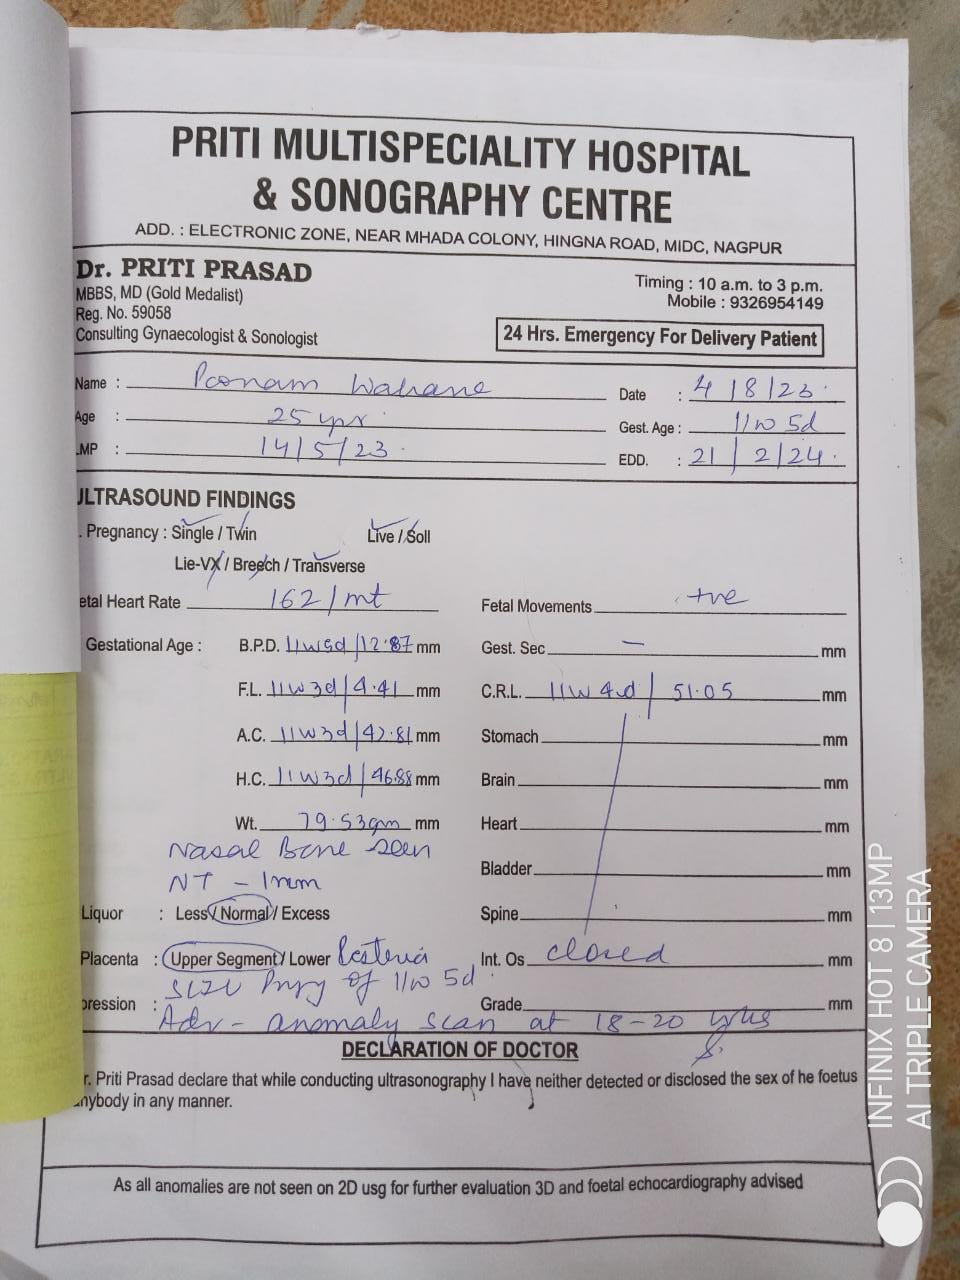 PRITI MULTISPECIALITY HOSPITAL
& SONOGRAPHY CENTRE
ADD. : ELECTRONIC ZONE, NEAR MHADA COLONY, HINGNA ROAD, MIDC, NAGPUR
Dr. PRITI PRASAD
MBBS, MD (Gold Medalist)
Reg. No. 59058
Consulting Gynaecologist & Sonologist
Timing : 10 a.m. to 3 p.m.
Mobile : 9326954149
24 Hrs. Emergency For Delivery Patient
Name : Poonam Wahane
Date : 4/8/23
Age : 25 yrs
Gest. Age : 11w 5d
LMP : 14/5/23
EDD. : 21/2/24
ULTRASOUND FINDINGS
. Pregnancy : Single / Twin Live / Soll
Lie-VX / Breech / Transverse
etal Heart Rate 162/mt Fetal Movements +ve
Gestational Age : B.P.D. 11w5d/12.87 mm Gest. Sec — mm
F.L. 11w3d/4.41 mm C.R.L. 11w4d/51.05 mm
A.C. 11w3d/42.81 mm Stomach mm
H.C. 11w3d/46.88 mm Brain mm
Wt. 79.53gm mm Heart mm
Nasal Bone seen
NT - 1mm
Bladder mm
Liquor : Less / Normal / Excess Spine mm
Placenta : Upper Segment / Lower Int. Os closed mm
of 11w 5d
pression : Grade mm
Adv - anomaly scan at 18-20
DECLARATION OF DOCTOR
r. Priti Prasad declare that while conducting ultrasonography I have neither detected or disclosed the sex of he foetus
nybody in any manner.
As all anomalies are not seen on 2D usg for further evaluation 3D and foetal echocardiography advised
INFINIX HOT 8 | 13MP
AI TRIPLE CAMERA